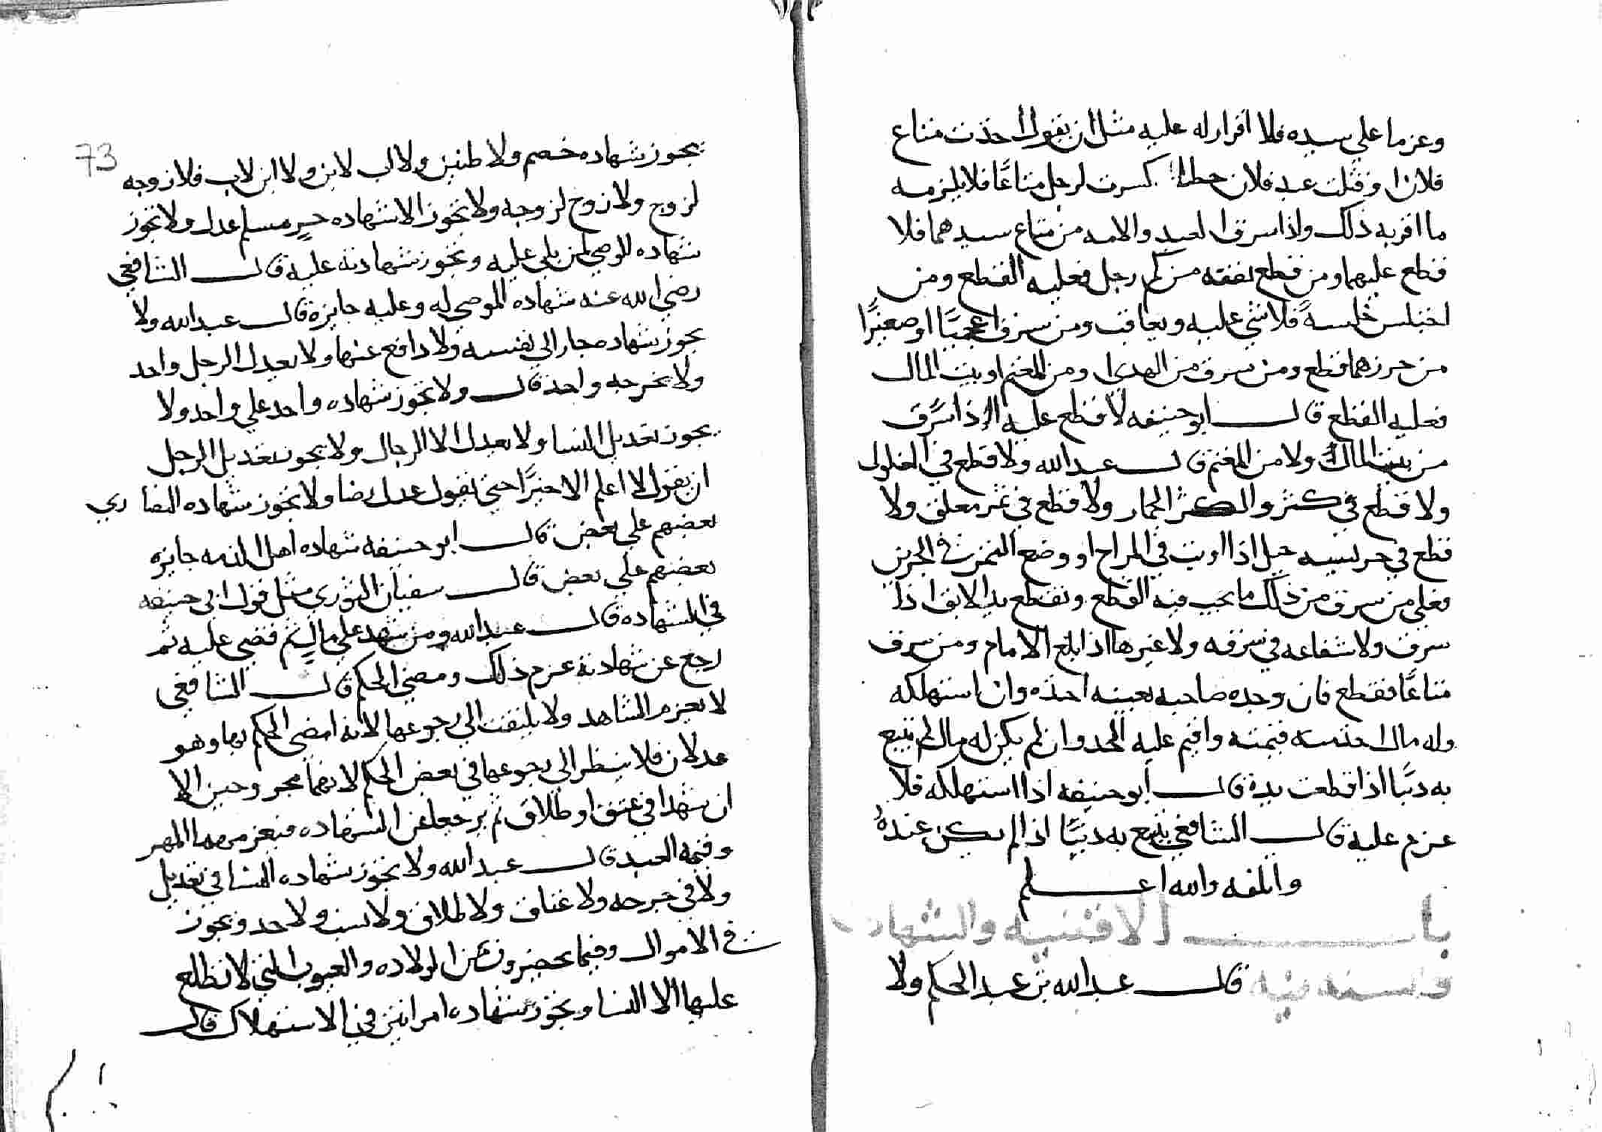 وعزما علي سيده فلا اقرار له عليه مثل ان يقول اخذت متاع
فلان او قتلت عبد فلان خطا او كسرت لرجل متاعًا فلا يلزمه
ما اقر به ذلك واذا سرق العبد والامه من متاع سيدهما فلا
قطع عليهما ومن قطع نفقه من كم رجل فعليه القطع ومن
اختلس خلسةً فلا شي عليه ويعاقب ومن سرق اعجميًا او صغيرًا
من حرزهما قطع ومن سرق من الهدي او من المغنم او بيت المال
فعليه القطع قال ابو حنيفه لا قطع عليه اذا سرق
من بيت المال ولا من المغنم قال عبد الله ولا قطع في الغلول
ولا قطع في كثر والكثر الجمار ولا قطع في ثمر معلق ولا
قطع في حريسه جبل اذا اويت في المراح او وضع الثمر في الجرين
فعلي من سرق من ذلك ما يجب فيه القطع ويقطع يد الابق اذا
سرق ولا شفاعه في سرقه ولا غيرها اذا بلغ الامام ومن سرق
متاعًا فقطع فان وجده صاحبه بعينه اخذه وان استهلكه
وله مال اخذ منه قيمته واقيم عليه الحد وان لم يكن له مال لم يتبع
به دينًا اذا قطعت يده قال ابو حنيفه اذا استهلكه فلا
عزم عليه قال الشافعي يتبع به دينًا اذا لم يكن عنده
واتلفه والله اعلم
باب الاقضيه والشهاد
قال عبد الله بن عبد الحكم ولا
73
يجوز شهاده خصم ولا ظنين ولا اب لابن ولا ابن لاب فلا زوجه
لزوج ولا زوج لزوجه ولا تجوز الا شهاده حر مسلم عدل ولا تجوز
شهاده للوصي لمن يلي عليه وتجوز شهادته عليه قال الشافعي
رضي الله عنه شهاده الموصي له وعليه جايزه قال عبد الله ولا
يجوز شهاده جار الي نفسه ولا دافع عنها ولا يعدل الرجل واحد
ولا يجرحه واحد قال ولا تجوز شهاده واحد علي واحد ولا
يجوز تعديل النسا ولا يعدل الا الرجال ولا يجوز تعديل الرجل
ان يقول لا اعلم الا خيرًا حتي يقول عدل رضا ولا يجوز شهاده النصاري
بعضهم علي بعض قال ابو حنيفه شهاده اهل الذمه جايزه
بعضهم علي بعض قال سفيان الثوري مثل قول ابي حنيفه
في الشهاده قال عبد الله ومن شهد علي مال ثم قضي عليه ثم
رجع عن شهادته عزم ذلك ومضي الحكم قال الشافعي
لا يعزم الشاهد ولا يلتفت الي رجوعها لانه امضي الحكم بها وهو
عدلان فلا ينظر الي رجوعها في بعض الحكم لانهما مجروحين الا
ان شهدا في عتق او طلاق ثم يرجعا عن الشهاده فيعزمهما المهر
وقيمه العبد قال عبد الله ولا تجوز شهاده النسا في تعديل
ولا في جرحه ولا عتاق ولا طلاق ولا نسب ولا حد ويجوز
في الاموال وفيما يحضرون من الولاده والعيوب التي لا يطلع
عليها الا النسا ويجوز شهاده امراتين في الاستهلاك قال